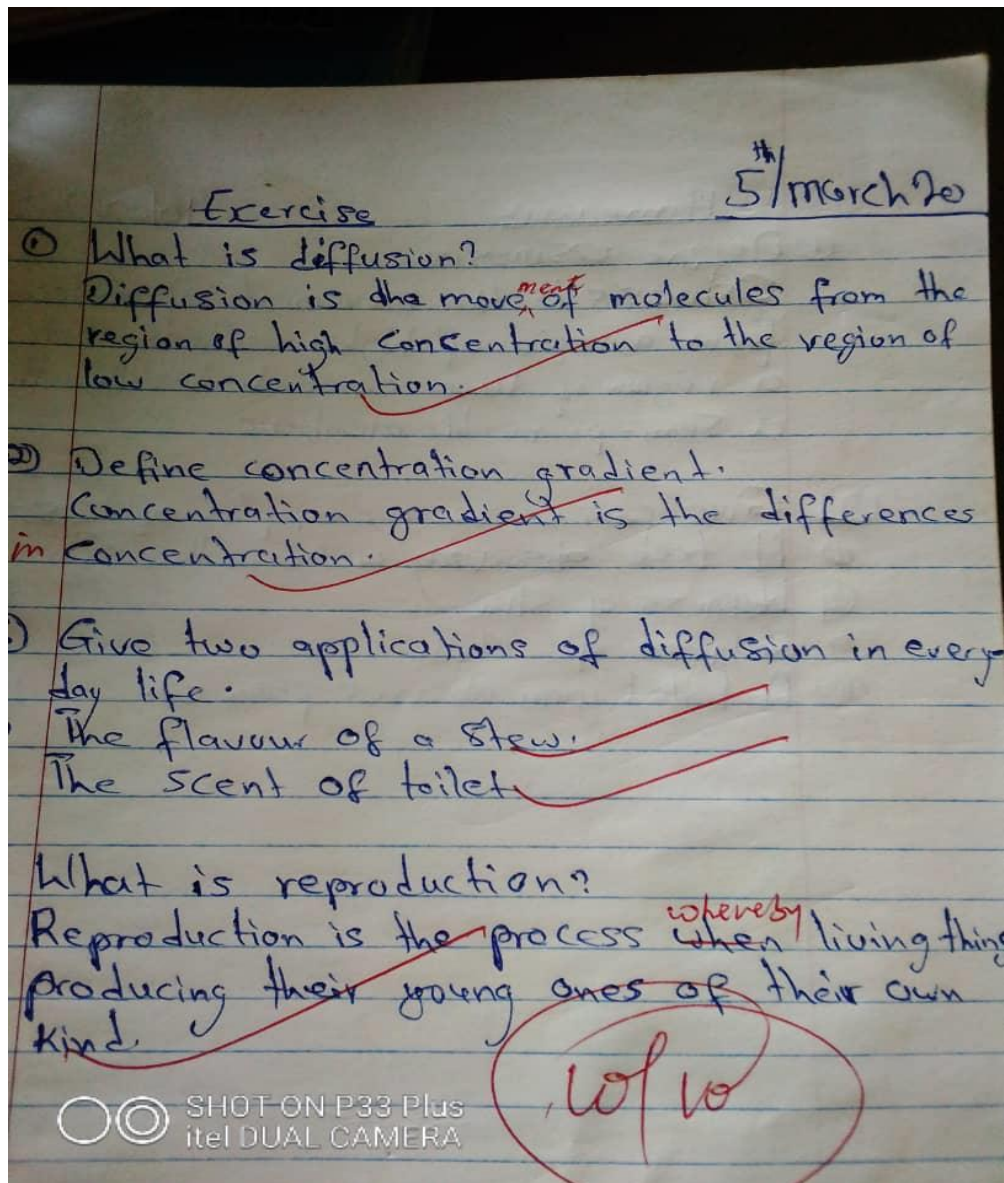 5th/march 20
Exercise
① What is diffusion?
Diffusion is dha movement of molecules from the
region of high concentration to the region of
low concentration.
2) Define concentration gradient.
Concentration gradient is the differences
in concentration.
) Give two applications of diffusion in every-
day life.
The flavour of a stew.
The scent of toilet
What is reproduction?
Reproduction is the process when whereby living thing
producing their young ones of their own
kind.
10/10
SHOT ON P33 Plus
itel DUAL CAMERA